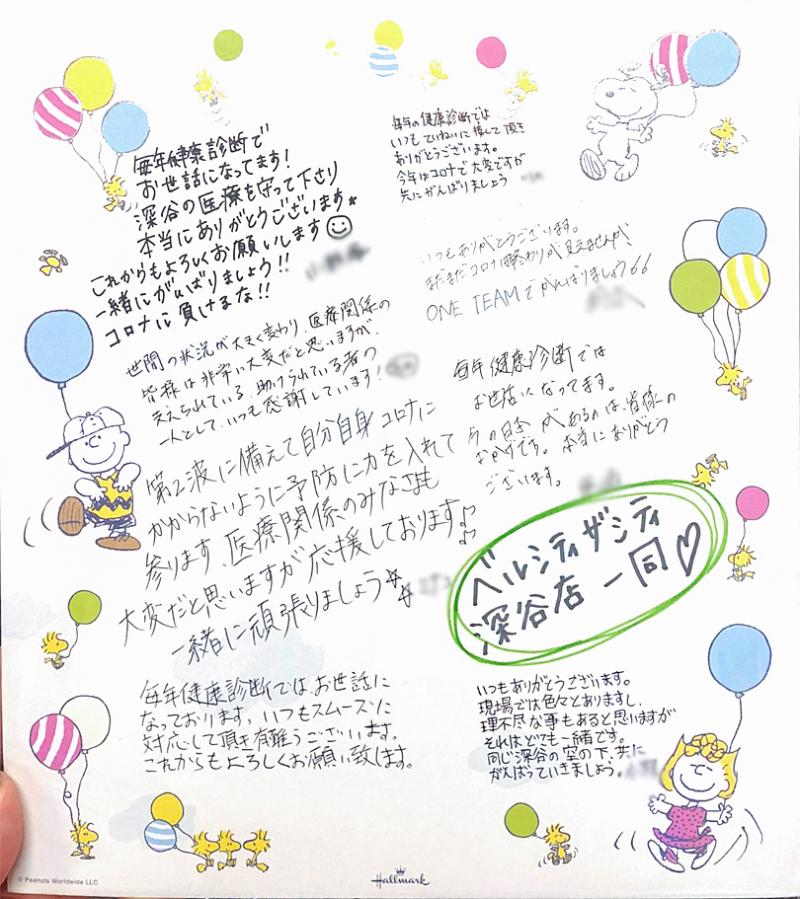 毎年健康診断で
お世話になってます!
深谷の医療を守って下さり
本当にありがとうございます。
これからもよろしくお願いします☺
一緒にがんばりましょう!!
コロナに負けるな!!
毎年の健康診断では
いつもていねいに接して頂き
ありがとうございます。
今年はコロナで大変ですが
共にがんばりましょう
いつもありがとうございます。
まだまだコロナ終わりが見えませんが
ONE TEAMでがんばりましょう
世間の状況が大きく変わり、医療関係の
皆様は非常に大変だと思いますが、
支えられている、助けられている者の
一人として、いつも感謝しています!
毎年健康診断では
お世話になってます。
今の日本があるのは、皆様の
おかげです。本当にありがとう
ございます。
第2波に備えて自分自身コロナに
かからないように予防に力を入れて
参ります。医療関係のみなさまも
大変だと思いますが応援しております♪
一緒に頑張りましょう☆
ベルシティザシティ
深谷店一同♡
毎年健康診断では、お世話に
なっております。いつもスムーズに
対応して頂き有難うございます。
これからもよろしくお願い致します。
いつもありがとうございます。
現場では色々とありますし、
理不尽な事もあると思いますが
それはどこでも一緒です。
同じ深谷の空の下、共に
がんばっていきましょう。
© Peanuts Worldwide LLC
Hallmark